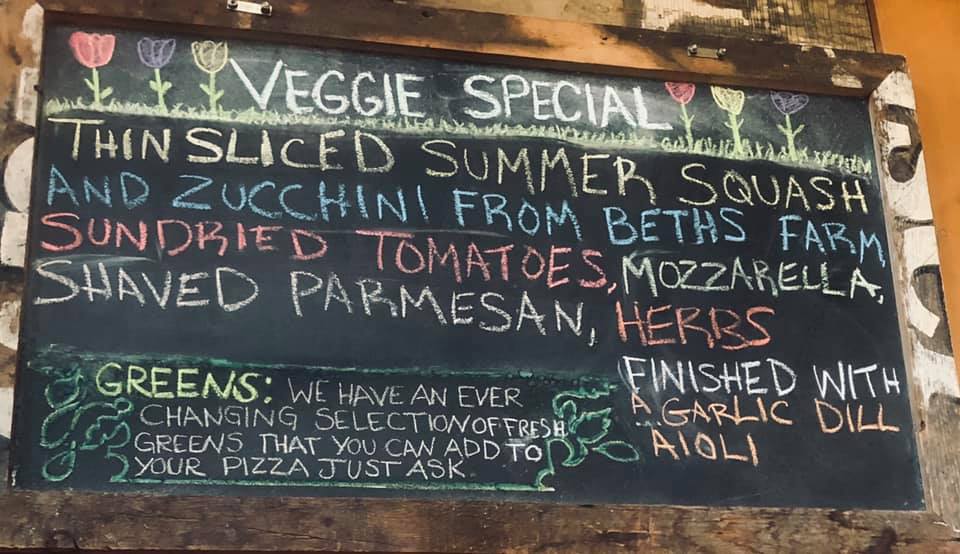 VEGGIE SPECIAL
THIN SLICED SUMMER SQUASH
AND ZUCCHINI FROM BETHS FARM,
SUNDRIED TOMATOES, MOZZARELLA,
SHAVED PARMESAN, HERBS
FINISHED WITH
A GARLIC DILL
AIOLI
GREENS: WE HAVE AN EVER
CHANGING SELECTION OF FRESH
GREENS THAT YOU CAN ADD TO
YOUR PIZZA JUST ASK.